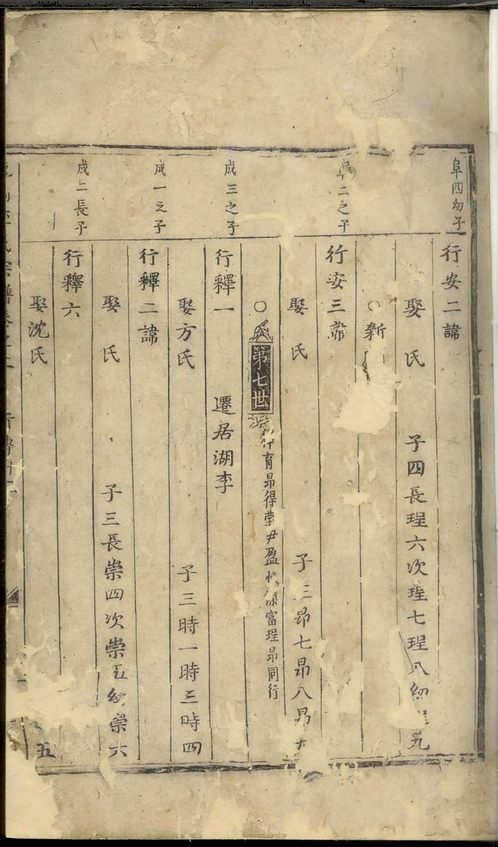 阜四幼子
行安二諱
娶 氏 子四長珵六次珵七珵八幼 九
○新
二之子
行安三
娶 氏 子三昂七昂八昂
○ 第七世 育昂得瑩尹盈 富珵昂同行
成三之子
行釋一 遷居湖李
娶方氏 子三時一時三時四
成一之子
行釋二諱
娶 氏 子三長崇四次崇五幼崇六
成二長子
行釋六
娶沈氏
五